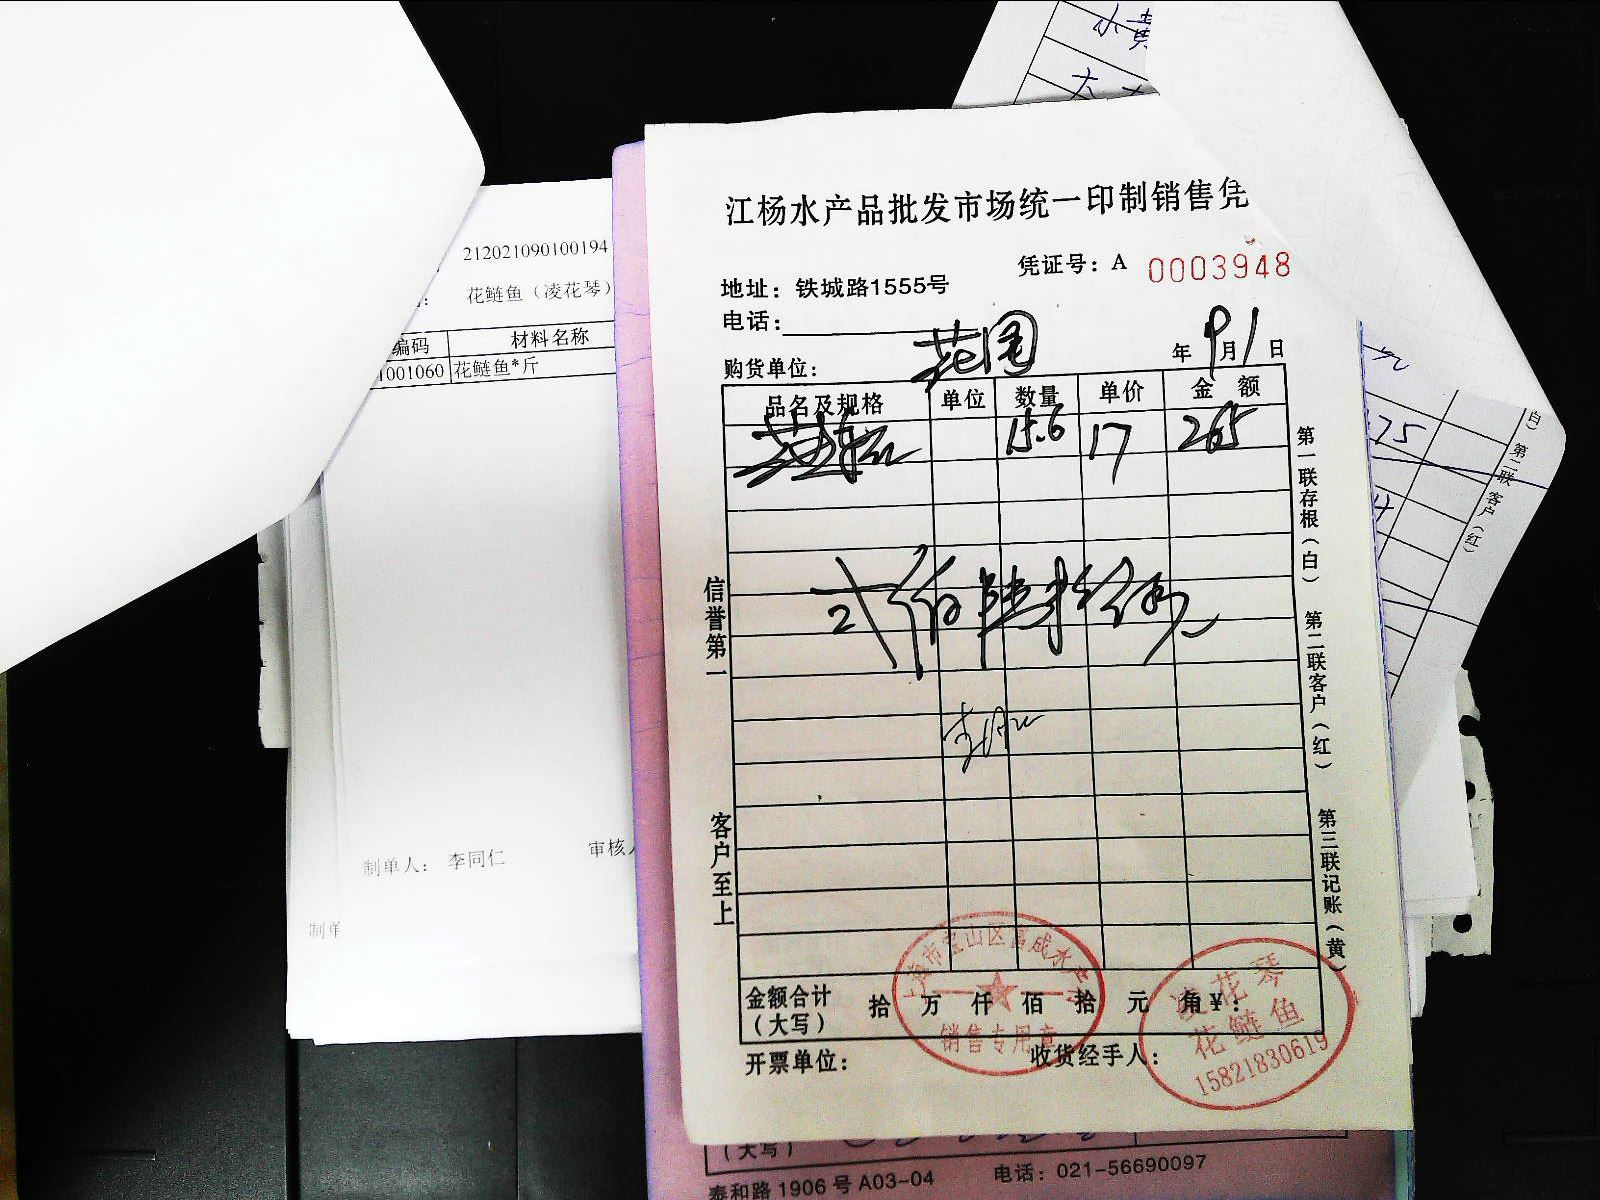 水黄
212021090100194
花鲢鱼（凌花琴）
编码 材料名称
1001060 花鲢鱼*斤
制单人： 李同仁
审核人
制单
江杨水产品批发市场统一印制销售凭
凭证号：A 0003948
地址：铁城路1555号
电话：
购货单位： 花园
年 9月1日
品名及规格 单位 数量 单价 金 额
花鲢 15.6 17 265
贰佰陆拾伍
信誉第一
客户至上
第一联存根（白） 第二联客户（红） 第三联记账（黄）
金额合计（大写） 拾 万 仟 佰 拾 元 角 ¥：
开票单位： 收货经手人：
上海市宝山区富成水产
销售专用章
凌花琴
花鲢鱼
15821830619
75
白）第二联 客户（红）
（大写）
泰和路 1906 号 A03-04 电话：021-56690097